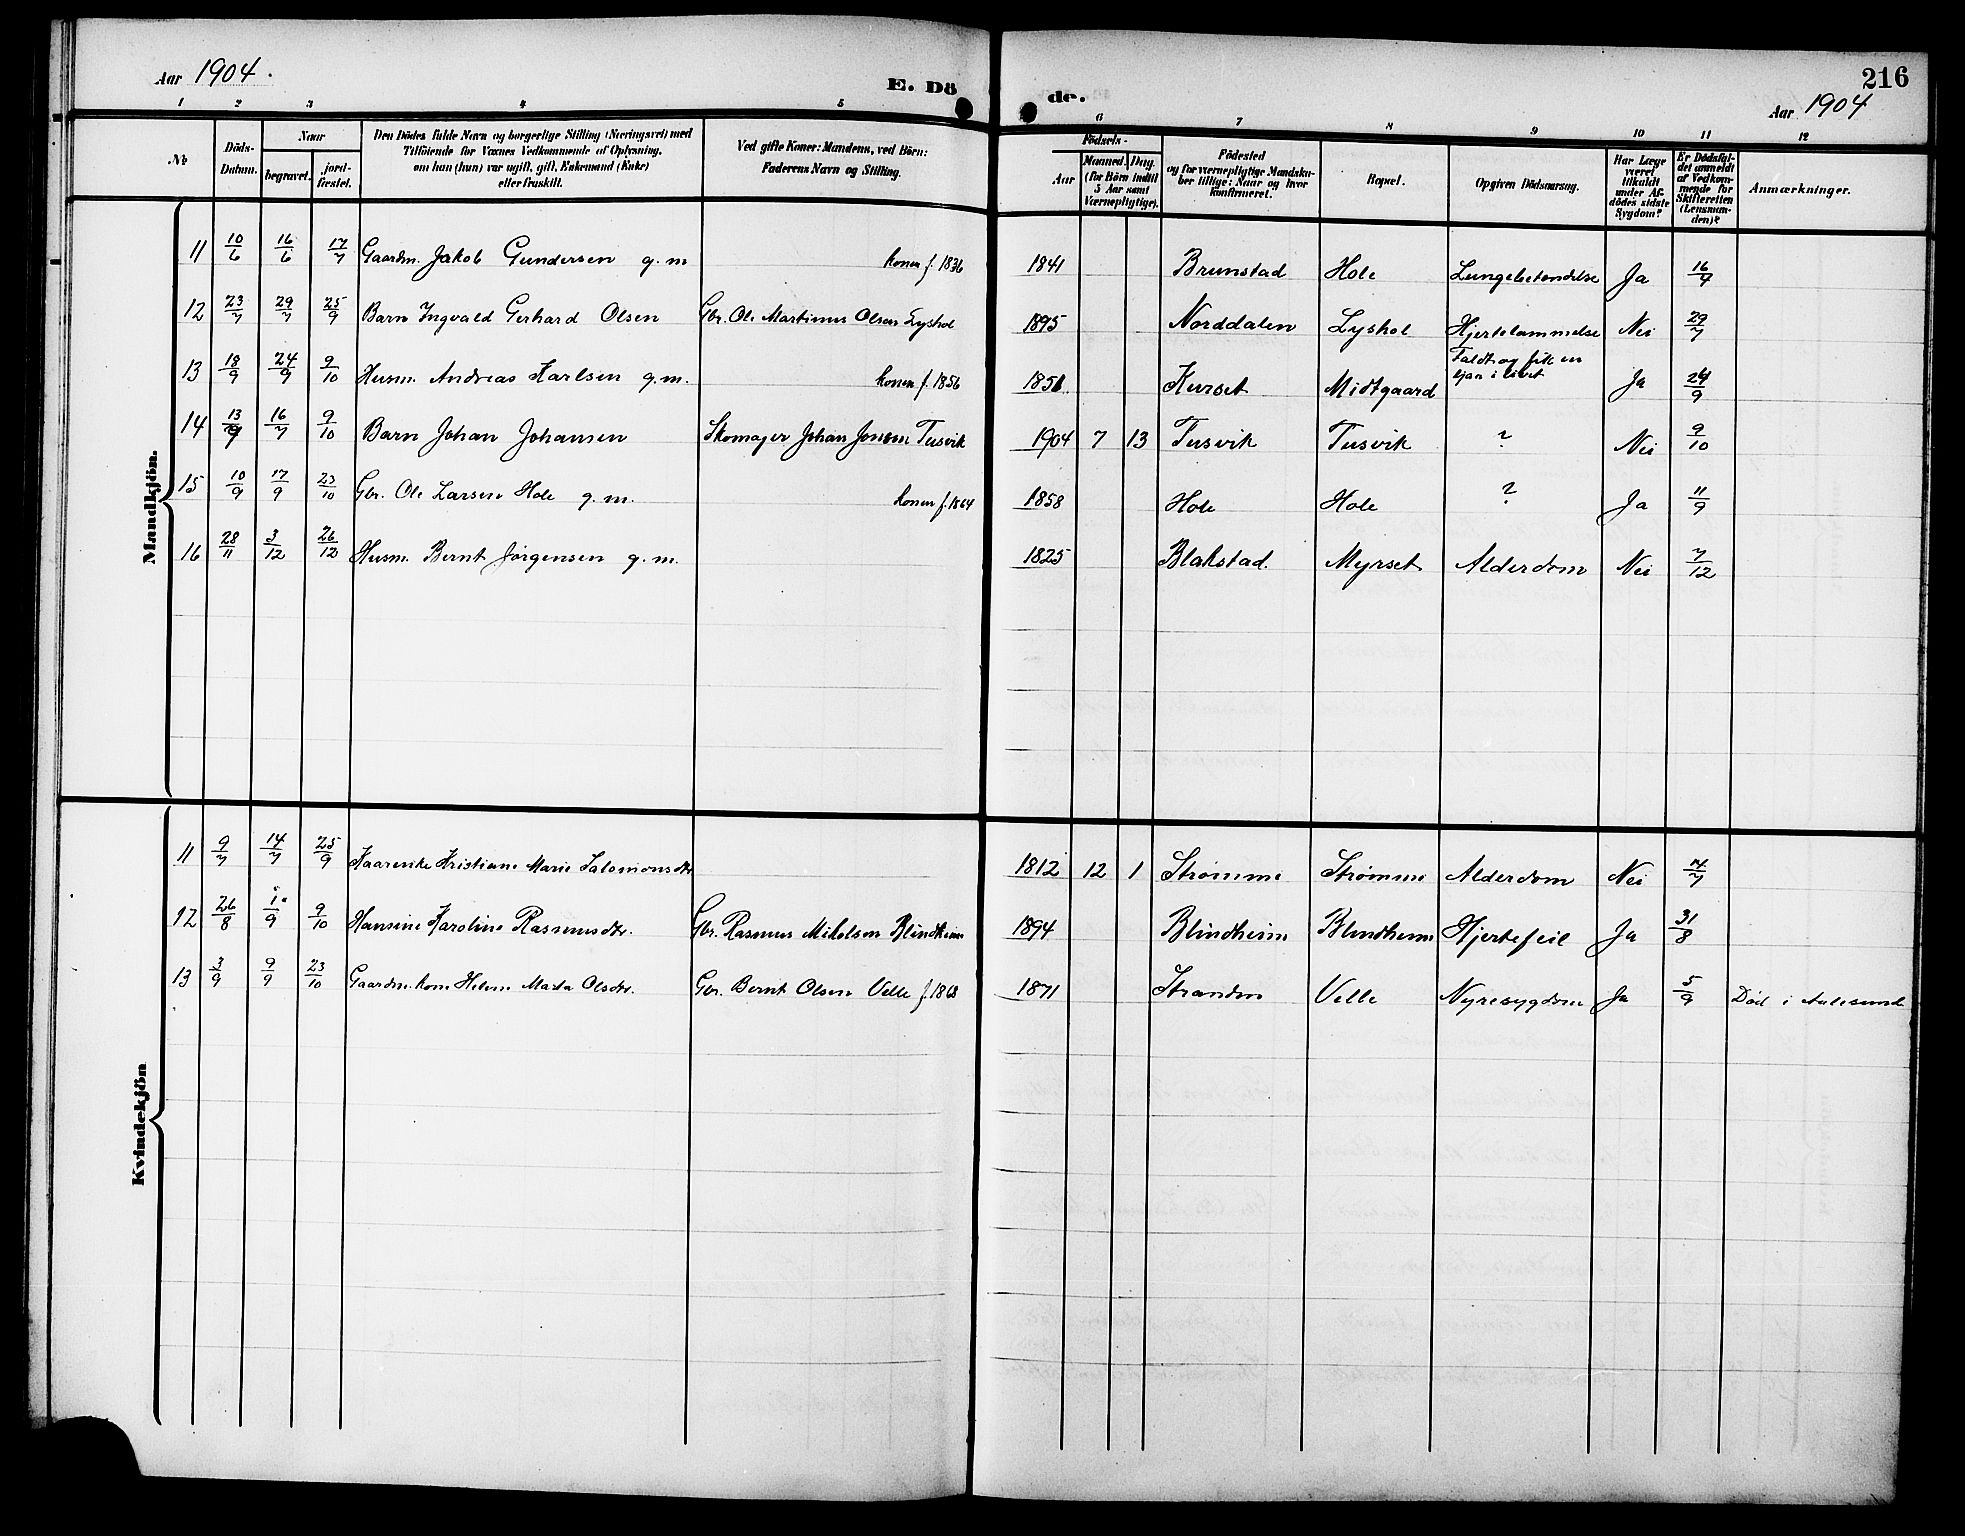 Aar 1904.
E. Dö
de.
216
Aar 1904
1 2 3 4 5 6 7 8 9 10 11 12
No
Döds-
Datum.
Naar
begravet.
jord-
fæstet.
Den Dödes fulde Navn og borgerlige Stilling (Næringsvei) med
Tilföiende for Voxnes Vedkommende af Oplysning,
om han (hun) var ugift, gift, Enkemand (Enke)
eller fraskilt.
Ved gifte Koner: Mandens, ved Börn:
Faderens Navn og Stilling.
Födsels-
Aar
Maaned. Dag.
(for Börn indtil
5 Aar samt
Værnepligtige).
Födested
og for værnepligtige Mandska-
ber tillige: Naar og hvor
konfirmeret.
Bopæl.
Opgiven Dödsaarsag.
Har Læge
været
tilkaldt
under Af-
dödes sidste
Sygdom?
Er Dödsfal-
det anmeldt
af Vedkom-
mende for
Skifteretten
(Lensman-
den)?
Anmærkninger.
Mandkjön.
11 10/6 16/6 17/7 Gaardm. Jakob Gundersen g. m. konen f. 1836 1841 Brunstad Hole Lungebetændelse Ja 16/7
12 23/7 29/7 25/9 Barn Ingvald Gerhard Olsen Gbr. Ole Martinus Olsen Lyshol 1895 Norddalen Lyshol Hjertelammelse Nei 29/7
13 18/9 24/9 9/10 Husm. Andreas Karlsen g. m. konen f. 1856 1851 Kurset Midtgaard Faldt og fik en
i livet Ja 24/9
14 13/7 16/7 9/10 Barn Johan Johansen Skomager Johan Jonsen Tusvik 1904 7 13 Tusvik Tusvik ? Nei 9/10
15 10/9 17/9 23/10 Gbr. Ole Larsen Hole g. m. konen f. 1864 1858 Hole Hole ? Ja 11/9
16 28/11 3/12 26/12 Husm. Bernt Jørgensen g. m. 1825 Blakstad. Myrset Alderdom Nei 7/12
Kvindekjön
11 9/7 14/7 25/9 Kaarenke Kristiane Marie Salomonsdtr 1812 12 1 Strømme Strømme Alderdom Nei 14/7
12 26/8 1/9 9/10 Hansine Karoline Rasmusdtr. Gbr. Rasmus Mikelsen Blindheim 1894 Blindheim Blindheim Hjertefeil Ja 31/8
13 3/9 9/9 23/10 Gaardm. kone Helene Marta Olsdtr. Gbr. Bernt Olsen Velle f. 1868 1871 Stranden Velle Nyresygdom Ja 5/9 Død i Aalesund